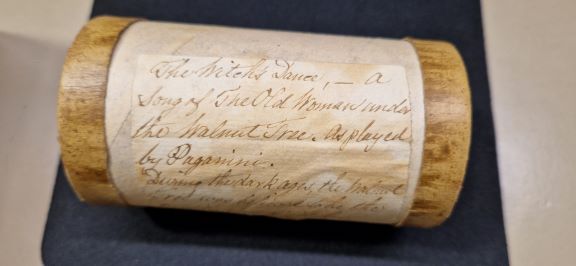 The Witch's Dance, — a
Song of The Old Woman under
the Walnut Tree. As played
by Paganini.
During the dark ages the walnut
tree was